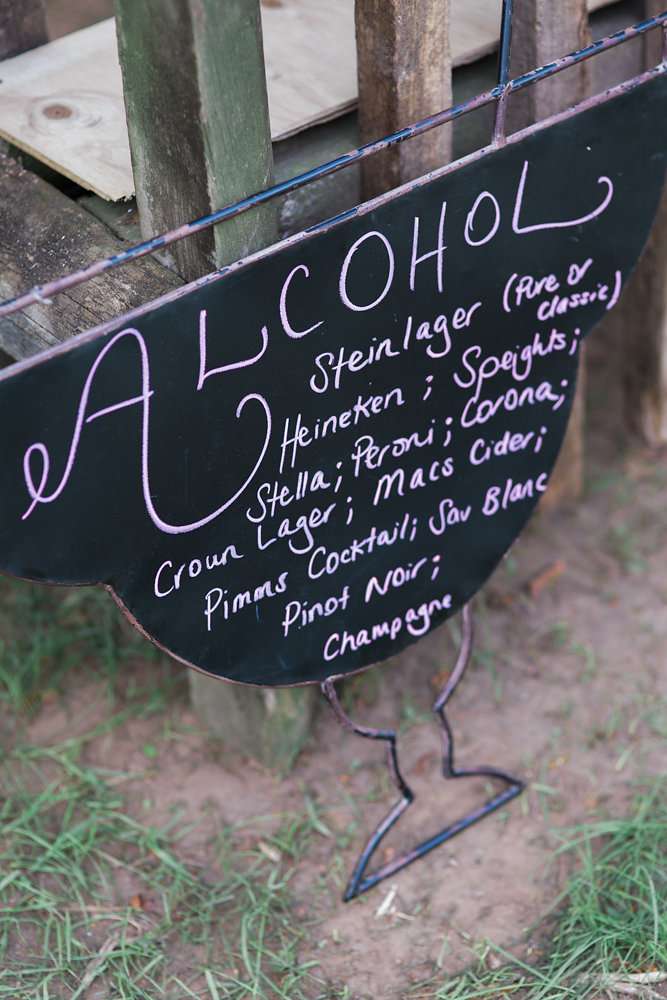 ALCOHOL
Steinlager (Pure or
classic)
Heineken ; Speights;
Stella; Peroni; Corona;
Crown Lager; Macs Cider;
Pimms Cocktail; Sav Blanc
Pinot Noir;
Champagne